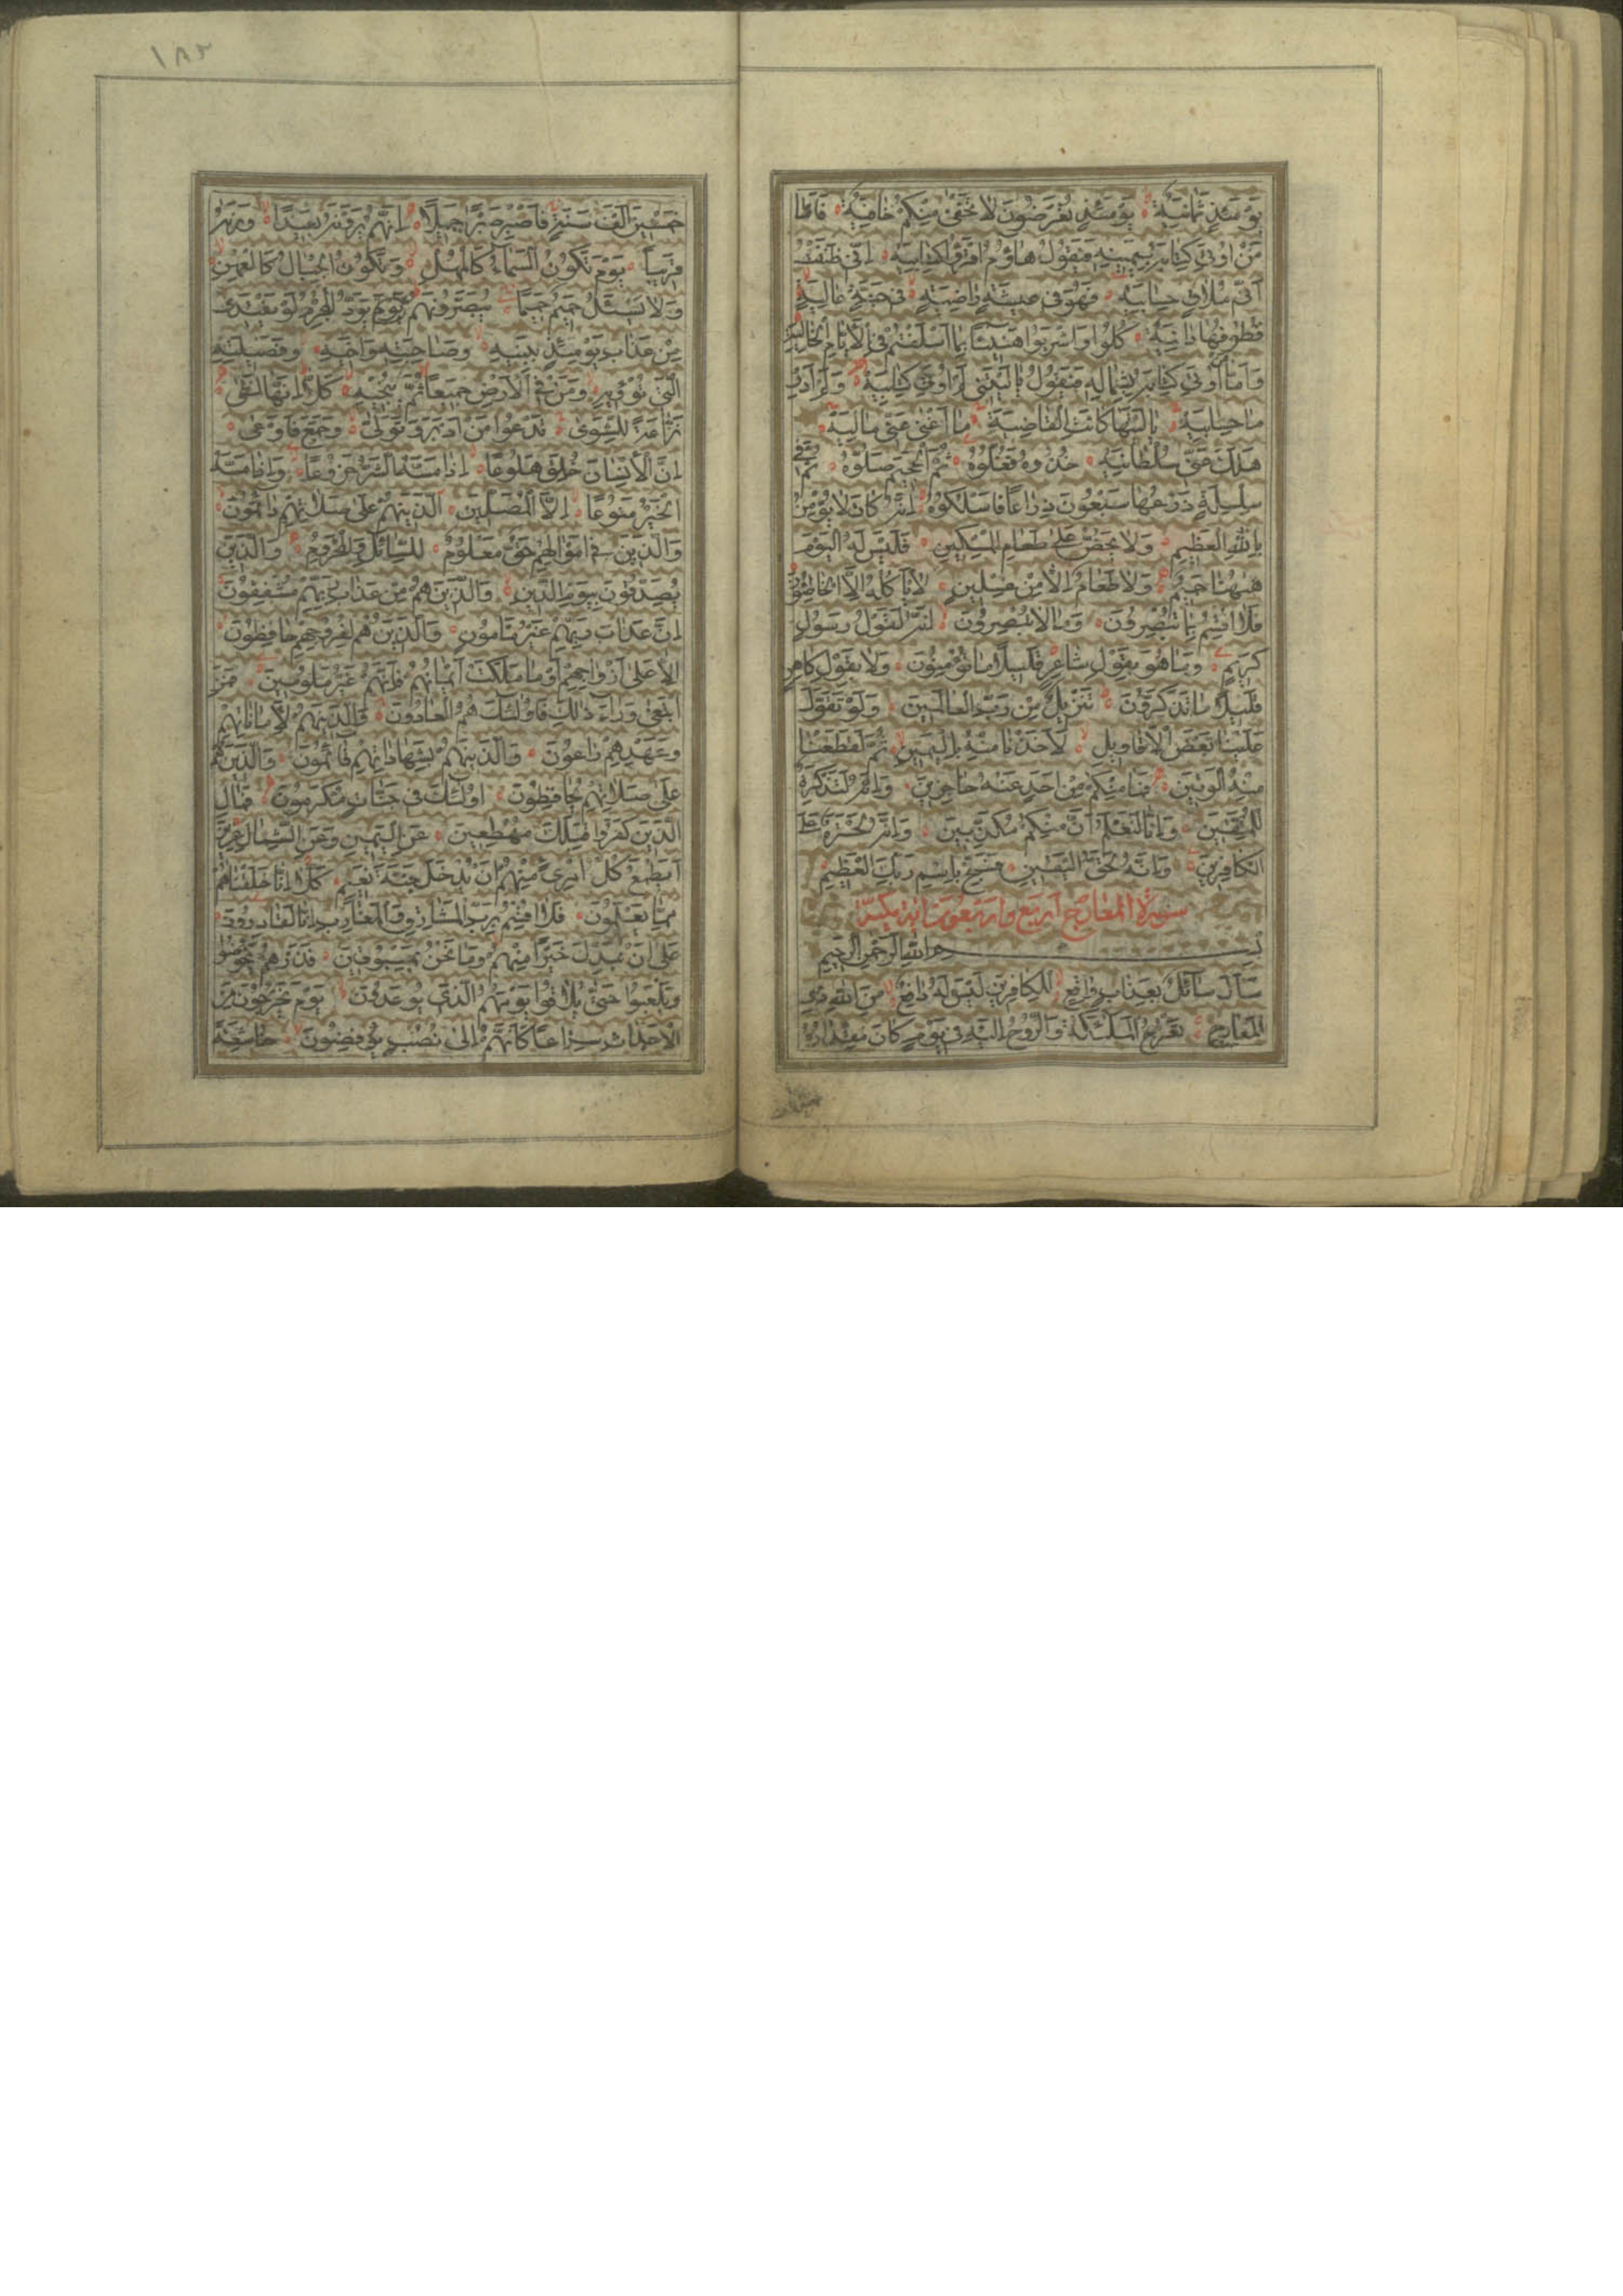 يَوْمَئِذٍ ثَمَانِيَةٌ يَوْمَئِذٍ تُعْرَضُونَ لَا تَخْفَىٰ مِنْكُمْ خَافِيَةٌ فَأَمَّا
مَنْ أُوتِيَ كِتَابَهُ بِيَمِينِهِ فَيَقُولُ هَاؤُمُ اقْرَؤُا كِتَابِيَهْ إِنِّي ظَنَنْتُ
أَنِّي مُلَاقٍ حِسَابِيَهْ فَهُوَ فِي عِيشَةٍ رَاضِيَةٍ فِي جَنَّةٍ عَالِيَةٍ
قُطُوفُهَا دَانِيَةٌ كُلُوا وَاشْرَبُوا هَنِيئًا بِمَا أَسْلَفْتُمْ فِي الْأَيَّامِ الْخَالِيَةِ
وَأَمَّا مَنْ أُوتِيَ كِتَابَهُ بِشِمَالِهِ فَيَقُولُ يَا لَيْتَنِي لَمْ أُوتَ كِتَابِيَهْ وَلَمْ أَدْرِ
مَا حِسَابِيَهْ يَا لَيْتَهَا كَانَتِ الْقَاضِيَةَ مَا أَغْنَىٰ عَنِّي مَالِيَهْ
هَلَكَ عَنِّي سُلْطَانِيَهْ خُذُوهُ فَغُلُّوهُ ثُمَّ الْجَحِيمَ صَلُّوهُ ثُمَّ فِي
سِلْسِلَةٍ ذَرْعُهَا سَبْعُونَ ذِرَاعًا فَاسْلُكُوهُ إِنَّهُ كَانَ لَا يُؤْمِنُ
بِاللَّهِ الْعَظِيمِ وَلَا يَحُضُّ عَلَىٰ طَعَامِ الْمِسْكِينِ فَلَيْسَ لَهُ الْيَوْمَ
هٰهُنَا حَمِيمٌ وَلَا طَعَامٌ إِلَّا مِنْ غِسْلِينٍ لَا يَأْكُلُهُ إِلَّا الْخَاطِئُونَ
فَلَا أُقْسِمُ بِمَا تُبْصِرُونَ وَمَا لَا تُبْصِرُونَ إِنَّهُ لَقَوْلُ رَسُولٍ
كَرِيمٍ وَمَا هُوَ بِقَوْلِ شَاعِرٍ قَلِيلًا مَا تُؤْمِنُونَ وَلَا بِقَوْلِ كَاهِنٍ
قَلِيلًا مَا تَذَكَّرُونَ تَنْزِيلٌ مِنْ رَبِّ الْعَالَمِينَ وَلَوْ تَقَوَّلَ
عَلَيْنَا بَعْضَ الْأَقَاوِيلِ لَأَخَذْنَا مِنْهُ بِالْيَمِينِ ثُمَّ لَقَطَعْنَا
مِنْهُ الْوَتِينَ فَمَا مِنْكُمْ مِنْ أَحَدٍ عَنْهُ حَاجِزِينَ وَإِنَّهُ لَتَذْكِرَةٌ
لِلْمُتَّقِينَ وَإِنَّا لَنَعْلَمُ أَنَّ مِنْكُمْ مُكَذِّبِينَ وَإِنَّهُ لَحَسْرَةٌ عَلَى
الْكَافِرِينَ وَإِنَّهُ لَحَقُّ الْيَقِينِ فَسَبِّحْ بِاسْمِ رَبِّكَ الْعَظِيمِ
سورة المعارج اربع واربعون اية مكية
بِسْمِ اللَّهِ الرَّحْمٰنِ الرَّحِيمِ
سَأَلَ سَائِلٌ بِعَذَابٍ وَاقِعٍ لِلْكَافِرِينَ لَيْسَ لَهُ دَافِعٌ مِنَ اللَّهِ ذِي
الْمَعَارِجِ تَعْرُجُ الْمَلٰئِكَةُ وَالرُّوحُ إِلَيْهِ فِي يَوْمٍ كَانَ مِقْدَارُهُ
١٨٢
خَمْسِينَ أَلْفَ سَنَةٍ فَاصْبِرْ صَبْرًا جَمِيلًا إِنَّهُمْ يَرَوْنَهُ بَعِيدًا وَنَرٰيهُ
قَرِيبًا يَوْمَ تَكُونُ السَّمَاءُ كَالْمُهْلِ وَتَكُونُ الْجِبَالُ كَالْعِهْنِ
وَلَا يَسْئَلُ حَمِيمٌ حَمِيمًا يُبَصَّرُونَهُمْ يَوَدُّ الْمُجْرِمُ لَوْ يَفْتَدِي
مِنْ عَذَابِ يَوْمِئِذٍ بِبَنِيهِ وَصَاحِبَتِهِ وَأَخِيهِ وَفَصِيلَتِهِ
الَّتِي تُؤْوِيهِ وَمَنْ فِي الْأَرْضِ جَمِيعًا ثُمَّ يُنْجِيهِ كَلَّا إِنَّهَا لَظَىٰ
نَزَّاعَةً لِلشَّوَىٰ تَدْعُوا مَنْ أَدْبَرَ وَتَوَلَّىٰ وَجَمَعَ فَأَوْعَىٰ
إِنَّ الْإِنْسَانَ خُلِقَ هَلُوعًا إِذَا مَسَّهُ الشَّرُّ جَزُوعًا وَإِذَا مَسَّهُ
الْخَيْرُ مَنُوعًا إِلَّا الْمُصَلِّينَ الَّذِينَ هُمْ عَلَىٰ صَلَاتِهِمْ دَائِمُونَ
وَالَّذِينَ فِي أَمْوَالِهِمْ حَقٌّ مَعْلُومٌ لِلسَّائِلِ وَالْمَحْرُومِ وَالَّذِينَ
يُصَدِّقُونَ بِيَوْمِ الدِّينِ وَالَّذِينَ هُمْ مِنْ عَذَابِ رَبِّهِمْ مُشْفِقُونَ
إِنَّ عَذَابَ رَبِّهِمْ غَيْرُ مَأْمُونٍ وَالَّذِينَ هُمْ لِفُرُوجِهِمْ حَافِظُونَ
إِلَّا عَلَىٰ أَزْوَاجِهِمْ أَوْ مَا مَلَكَتْ أَيْمَانُهُمْ فَإِنَّهُمْ غَيْرُ مَلُومِينَ فَمَنِ
ابْتَغَىٰ وَرَاءَ ذٰلِكَ فَأُولٰئِكَ هُمُ الْعَادُونَ وَالَّذِينَ هُمْ لِأَمَانَاتِهِمْ
وَعَهْدِهِمْ رَاعُونَ وَالَّذِينَ هُمْ بِشَهَادَاتِهِمْ قَائِمُونَ وَالَّذِينَ هُمْ
عَلَىٰ صَلَاتِهِمْ يُحَافِظُونَ أُولٰئِكَ فِي جَنَّاتٍ مُكْرَمُونَ فَمَالِ
الَّذِينَ كَفَرُوا قِبَلَكَ مُهْطِعِينَ عَنِ الْيَمِينِ وَعَنِ الشِّمَالِ عِزِينَ
أَيَطْمَعُ كُلُّ امْرِئٍ مِنْهُمْ أَنْ يُدْخَلَ جَنَّةَ نَعِيمٍ كَلَّا إِنَّا خَلَقْنَاهُمْ
مِمَّا يَعْلَمُونَ فَلَا أُقْسِمُ بِرَبِّ الْمَشَارِقِ وَالْمَغَارِبِ إِنَّا لَقَادِرُونَ
عَلَىٰ أَنْ نُبَدِّلَ خَيْرًا مِنْهُمْ وَمَا نَحْنُ بِمَسْبُوقِينَ فَذَرْهُمْ يَخُوضُوا
وَيَلْعَبُوا حَتَّىٰ يُلَاقُوا يَوْمَهُمُ الَّذِي يُوعَدُونَ يَوْمَ يَخْرُجُونَ مِنَ
الْأَجْدَاثِ سِرَاعًا كَأَنَّهُمْ إِلَىٰ نُصُبٍ يُوفِضُونَ خَاشِعَةً